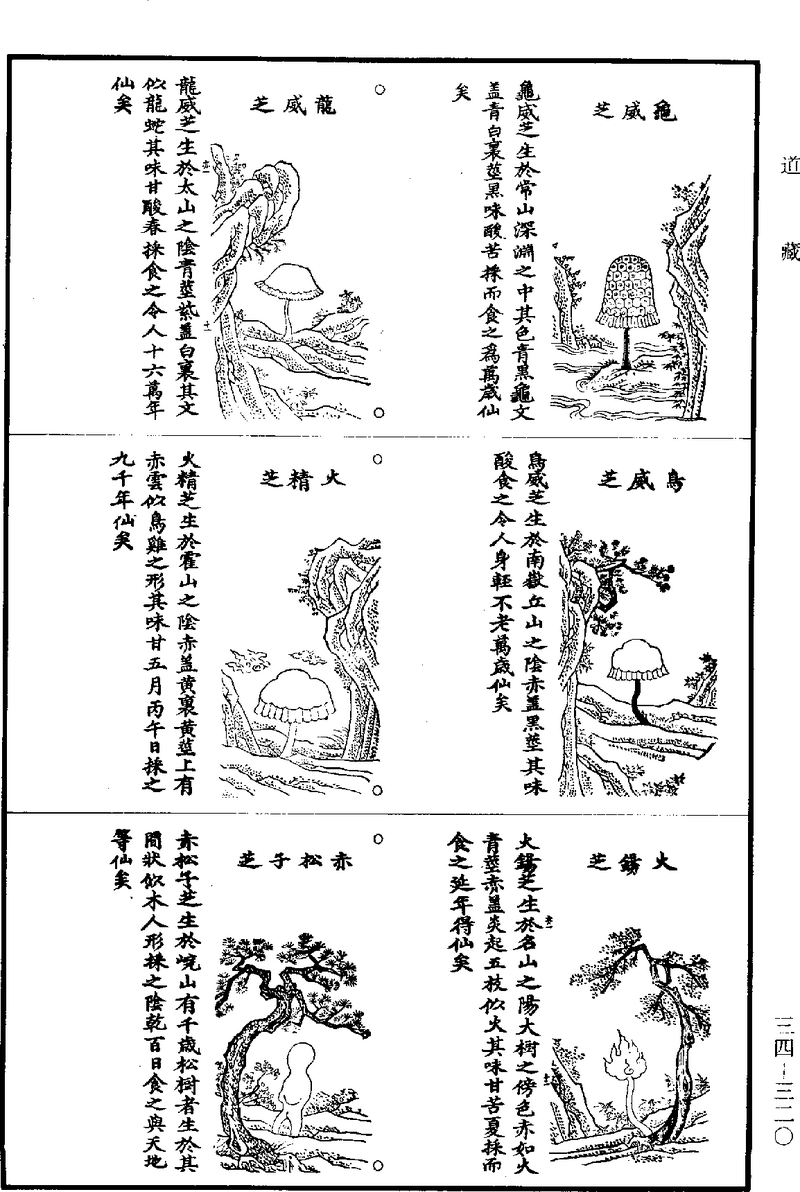 道藏
龜威芝
龜威芝生於常山深淵之中其色青黑龜文
盖青白裏莖黑味酸苦採而食之為萬歲仙
矣
龍威芝
龍威芝生於太山之陰青莖紫盖白裏其文
似龍蛇其味甘酸春採食之令人十六萬年
仙矣
鳥威芝
鳥威芝生於南嶽丘山之陰赤盖黑莖其味
酸食之令人身輕不老萬歲仙矣
火精芝
火精芝生於霍山之陰赤盖黄裏黄莖上有
赤雲似鳥雞之形其味甘五月丙午日採之
九千年仙矣
火錫芝
火錫芝生於名山之陽大樹之傍色赤如火
青莖赤盖炎起五枝似火其味甘苦夏採而
食之延年得仙矣
赤松子芝
赤松子芝生於嶢山有千歲松樹者生於其
間狀似木人形採之陰乾百日食之與天地
等仙矣
三四-三二〇